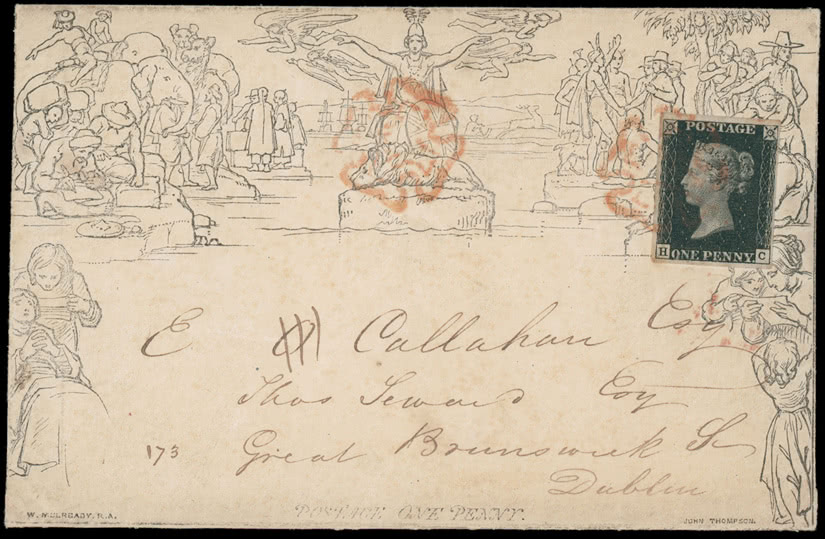 POSTAGE
H C
ONE PENNY
E O' Callahan Esq
Thos Seward Esq
173
Great Brunswick St
Dublin
POSTAGE ONE PENNY.
W. MULREADY. R.A.
JOHN THOMPSON.